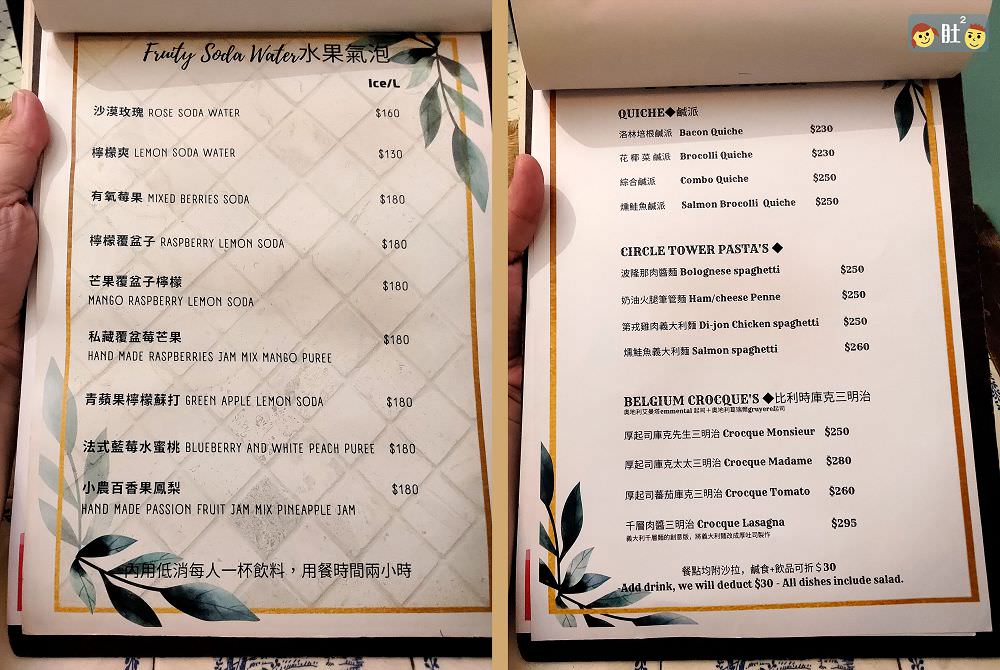 Fruity Soda Water水果氣泡
Ice/L
沙漠玫瑰 ROSE SODA WATER $160
檸檬爽 LEMON SODA WATER $130
有氧莓果 MIXED BERRIES SODA $180
檸檬覆盆子 RASPBERRY LEMON SODA $180
芒果覆盆子檸檬 $180
MANGO RASPBERRY LEMON SODA
私藏覆盆莓芒果 $180
HAND MADE RASPBERRIES JAM MIX MANGO PUREE
青蘋果檸檬蘇打 GREEN APPLE LEMON SODA $180
法式藍莓水蜜桃 BLUEBERRY AND WHITE PEACH PUREE $180
小農百香果鳳梨 $180
HAND MADE PASSION FRUIT JAM MIX PINEAPPLE JAM
內用低消每人一杯飲料，用餐時間兩小時
肚2
QUICHE◆鹹派
洛林培根鹹派 Bacon Quiche $230
花椰菜鹹派 Brocolli Quiche $230
綜合鹹派 Combo Quiche $250
燻鮭魚鹹派 Salmon Brocolli Quiche $250
CIRCLE TOWER PASTA'S ◆
波隆那肉醬麵 Bolognese spaghetti $250
奶油火腿筆管麵 Ham/cheese Penne $250
第戎雞肉義大利麵 Di-jon Chicken spaghetti $250
燻鮭魚義大利麵 Salmon spaghetti $260
BELGIUM CROCQUE'S ◆比利時庫克三明治
奧地利艾曼塔emmental 起司＋奧地利葛瑞爾gruyere起司
厚起司庫克先生三明治 Crocque Monsieur $250
厚起司庫克太太三明治 Crocque Madame $280
厚起司蕃茄庫克三明治 Crocque Tomato $260
千層肉醬三明治 Crocque Lasagna $295
義大利千層麵的創意版，將義大利麵改成厚吐司製作
餐點均附沙拉，鹹食+飲品可折＄30
-Add drink, we will deduct $30 - All dishes include salad.